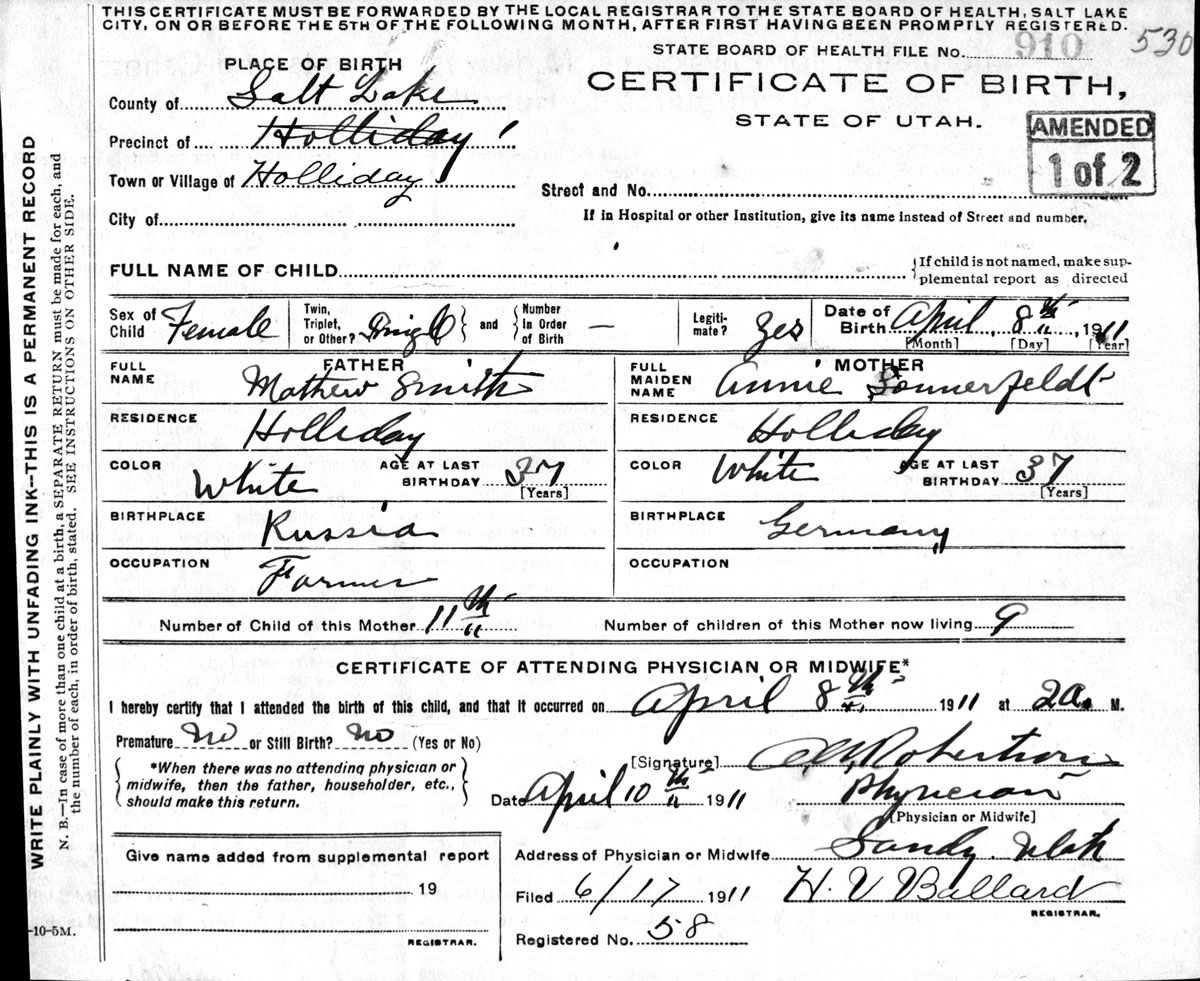 THIS CERTIFICATE MUST BE FORWARDED BY THE LOCAL REGISTRAR TO THE STATE BOARD OF HEALTH, SALT LAKE
CITY, ON OR BEFORE THE 5TH OF THE FOLLOWING MONTH, AFTER FIRST HAVING BEEN PROMPTLY REGISTERED.
530
STATE BOARD OF HEALTH FILE No. 910
PLACE OF BIRTH
CERTIFICATE OF BIRTH,
STATE OF UTAH.
AMENDED
1 of 2
County of Salt Lake
Precinct of Holliday
Town or Village of Holliday
Street and No.
City of
If in Hospital or other Institution, give its name instead of Street and number.
FULL NAME OF CHILD
If child is not named, make sup-
plemental report as directed
Sex of Child Female
Twin, Triplet, or Other? Single and Number In Order of Birth —
Legiti-mate? Yes
Date of Birth April 8th 1911
[Month] [Day] [Year]
FATHER
FULL NAME Mathew Smith
RESIDENCE Holliday
COLOR White AGE AT LAST BIRTHDAY 37 [Years]
BIRTHPLACE Russia
OCCUPATION Farmer
MOTHER
FULL MAIDEN NAME Annie Sonnerfeldt
RESIDENCE Holliday
COLOR White AGE AT LAST BIRTHDAY 37 [Years]
BIRTHPLACE Germany
OCCUPATION
Number of Child of this Mother 11th
Number of children of this Mother now living 9
CERTIFICATE OF ATTENDING PHYSICIAN OR MIDWIFE*
I hereby certify that I attended the birth of this child, and that it occurred on April 8th 1911 at 2 a. M.
Premature No or Still Birth? No (Yes or No)
*When there was no attending physician or
midwife, then the father, householder, etc.,
should make this return.
[Signature] Robertson
Date April 10th 1911 Physician
[Physician or Midwife]
Give name added from supplemental report
19
REGISTRAR.
Address of Physician or Midwife Sandy Utah
Filed 6/17 1911 H. V Ballard
REGISTRAR.
Registered No. 58
WRITE PLAINLY WITH UNFADING INK--THIS IS A PERMANENT RECORD
N. B.—In case of more than one child at a birth, a SEPARATE RETURN must be made for each, and
the number of each, in order of birth, stated. SEE INSTRUCTIONS ON OTHER SIDE.
-10-5M.